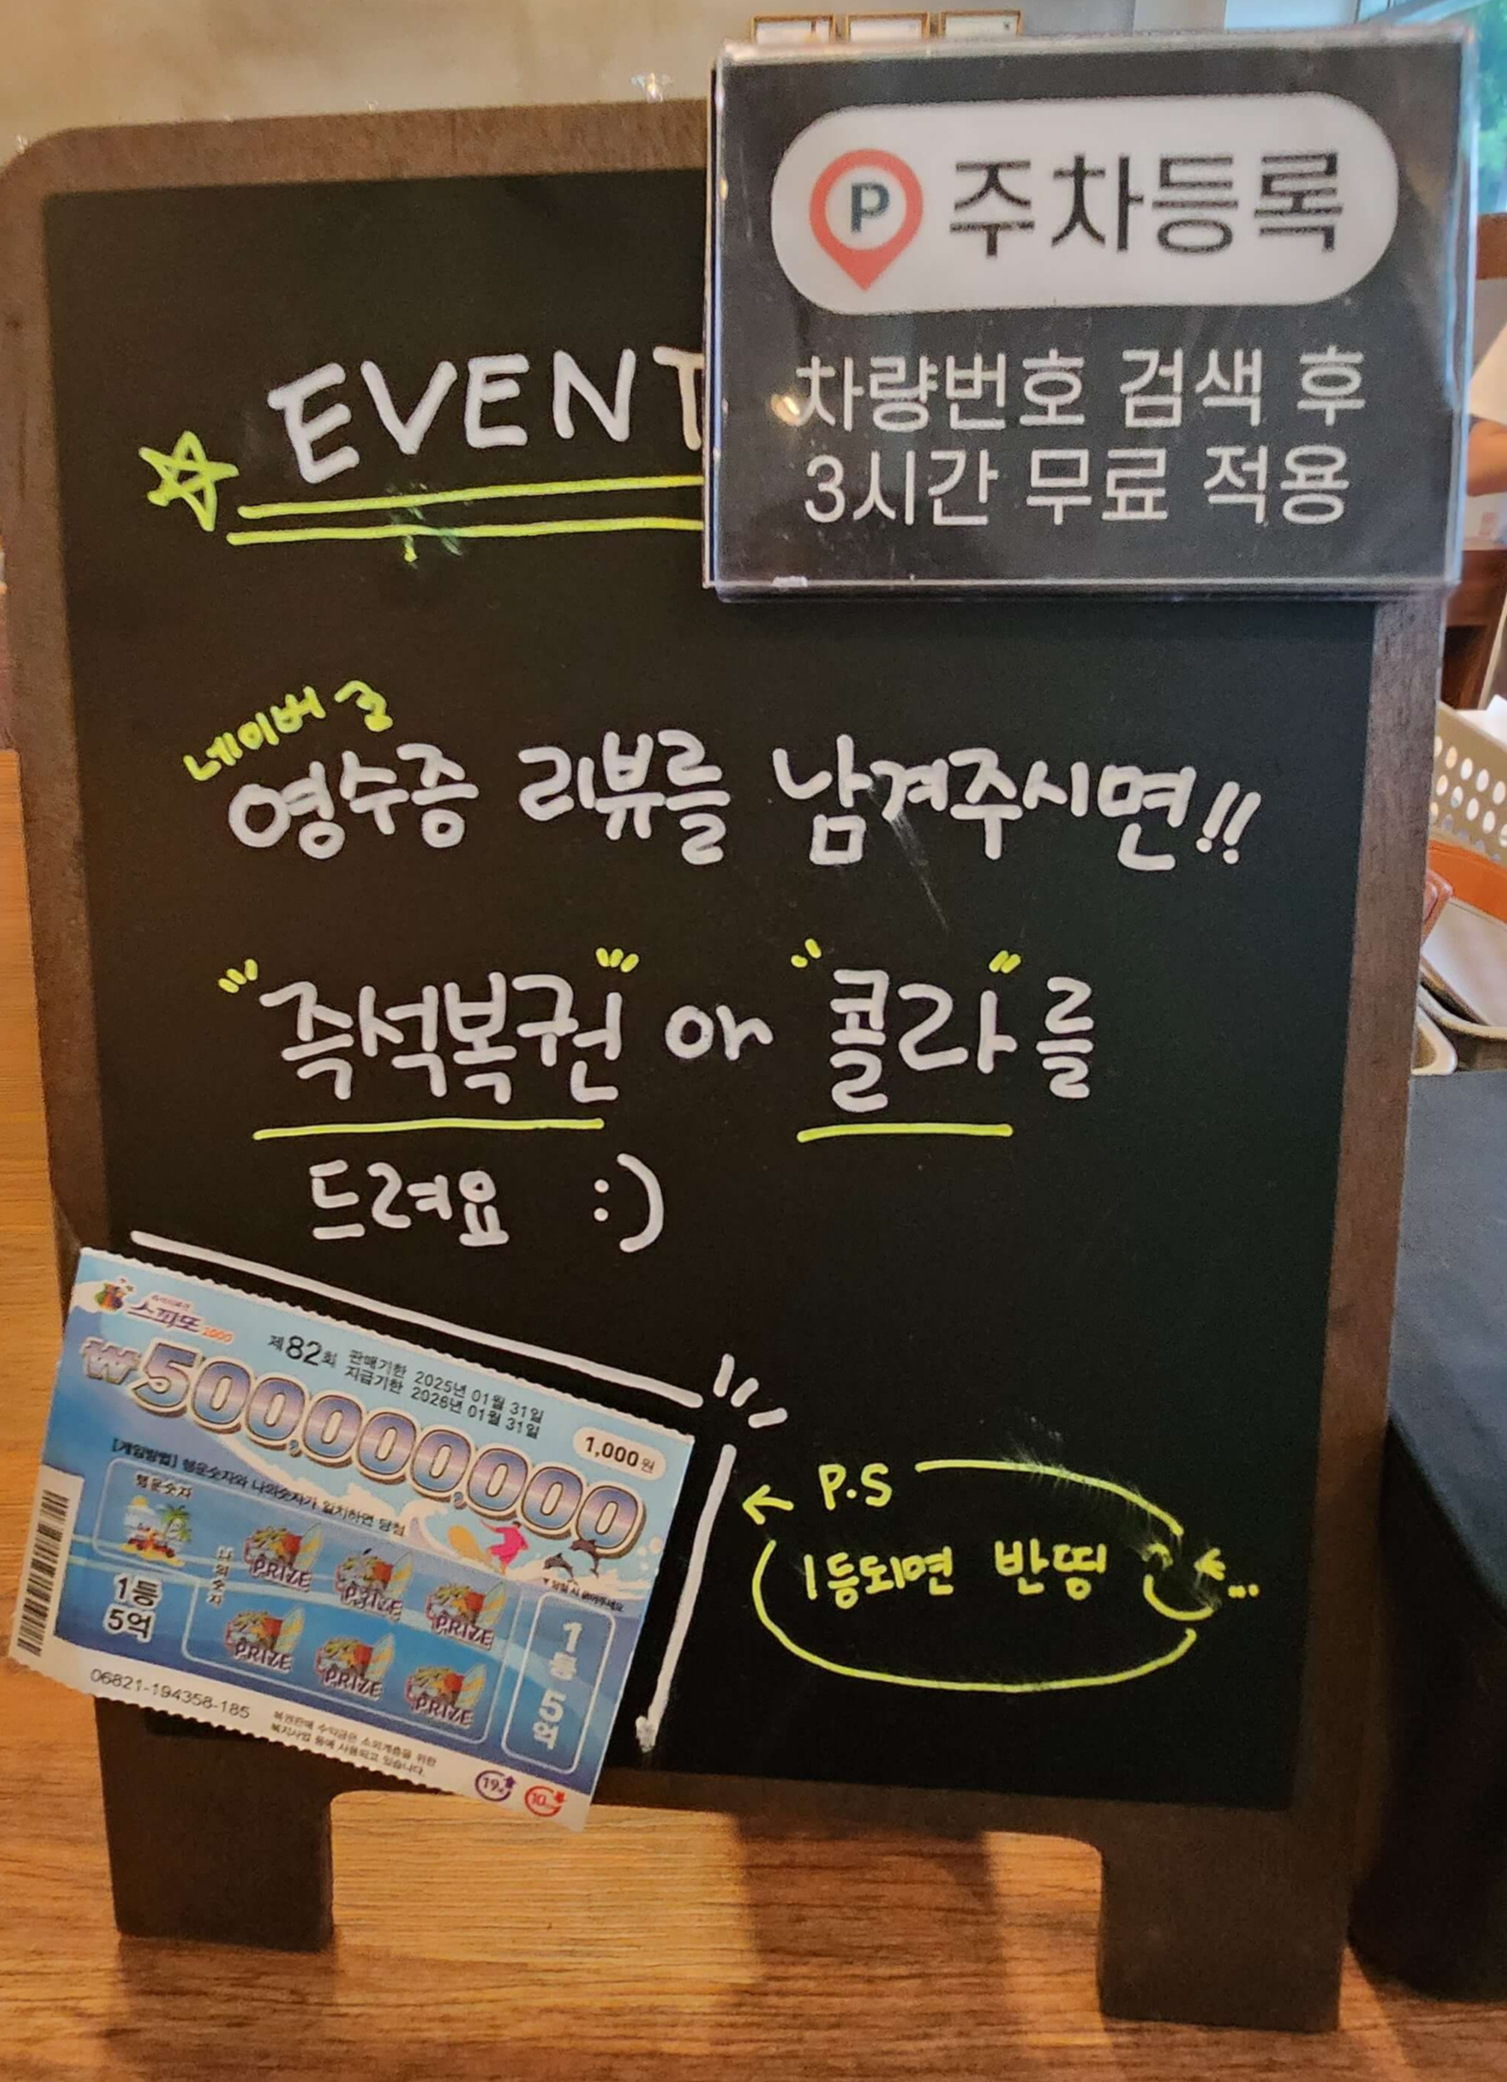 P 주차등록
차량번호 검색 후
3시간 무료 적용
EVENT
네이버로
영수증 리뷰를 남겨주시면!!
"즉석복권" or "콜라"를
드려요 :)
스피또 1000
제82회 판매기한 2025년 01월 31일
지급기한 2026년 01월 31일
₩500,000,000
1,000원
[게임방법] 행운숫자와 나의숫자가 일치하면 당첨
행운숫자
나의숫자
PRIZE PRIZE PRIZE
PRIZE PRIZE PRIZE
1등
5억
1등 5억
06821-194358-185
복권판매 수익금은 소외계층을 위한
복지사업 등에 사용되고 있습니다.
19+
10
← P.S
1등되면 반띵